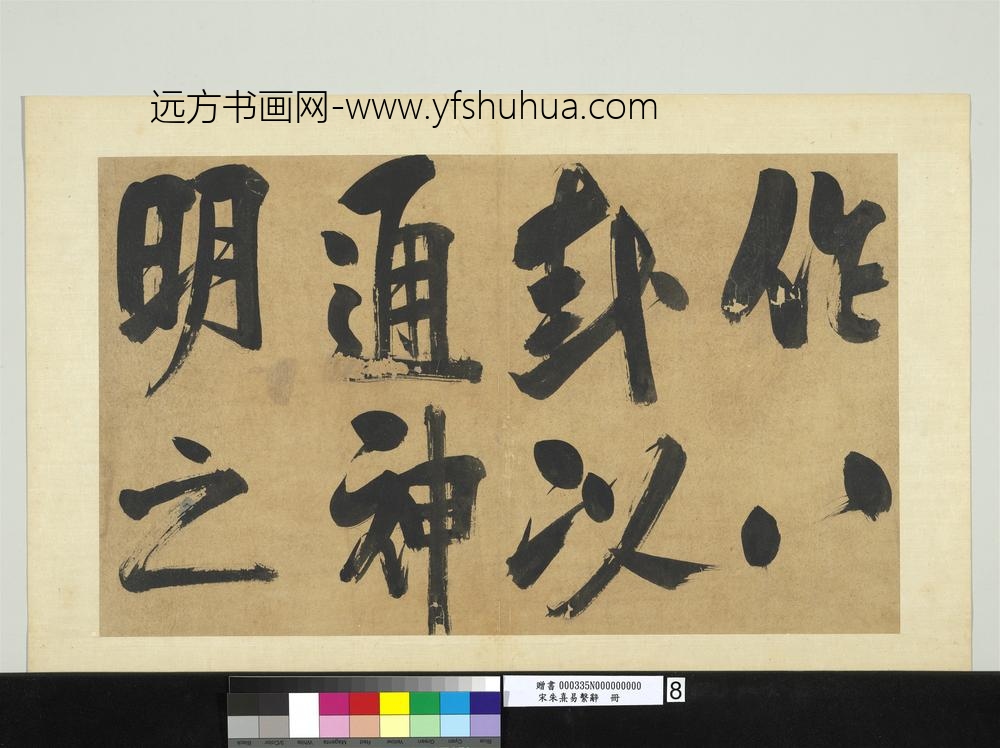 远方书画网-www.yfshuhua.com
作八
卦以
通神
明之
贈書 000335N000000000
宋朱熹易繫辭 冊
8
Black
3/Color
White
Magenta
Red
Yellow
Green
Cyan
Blue